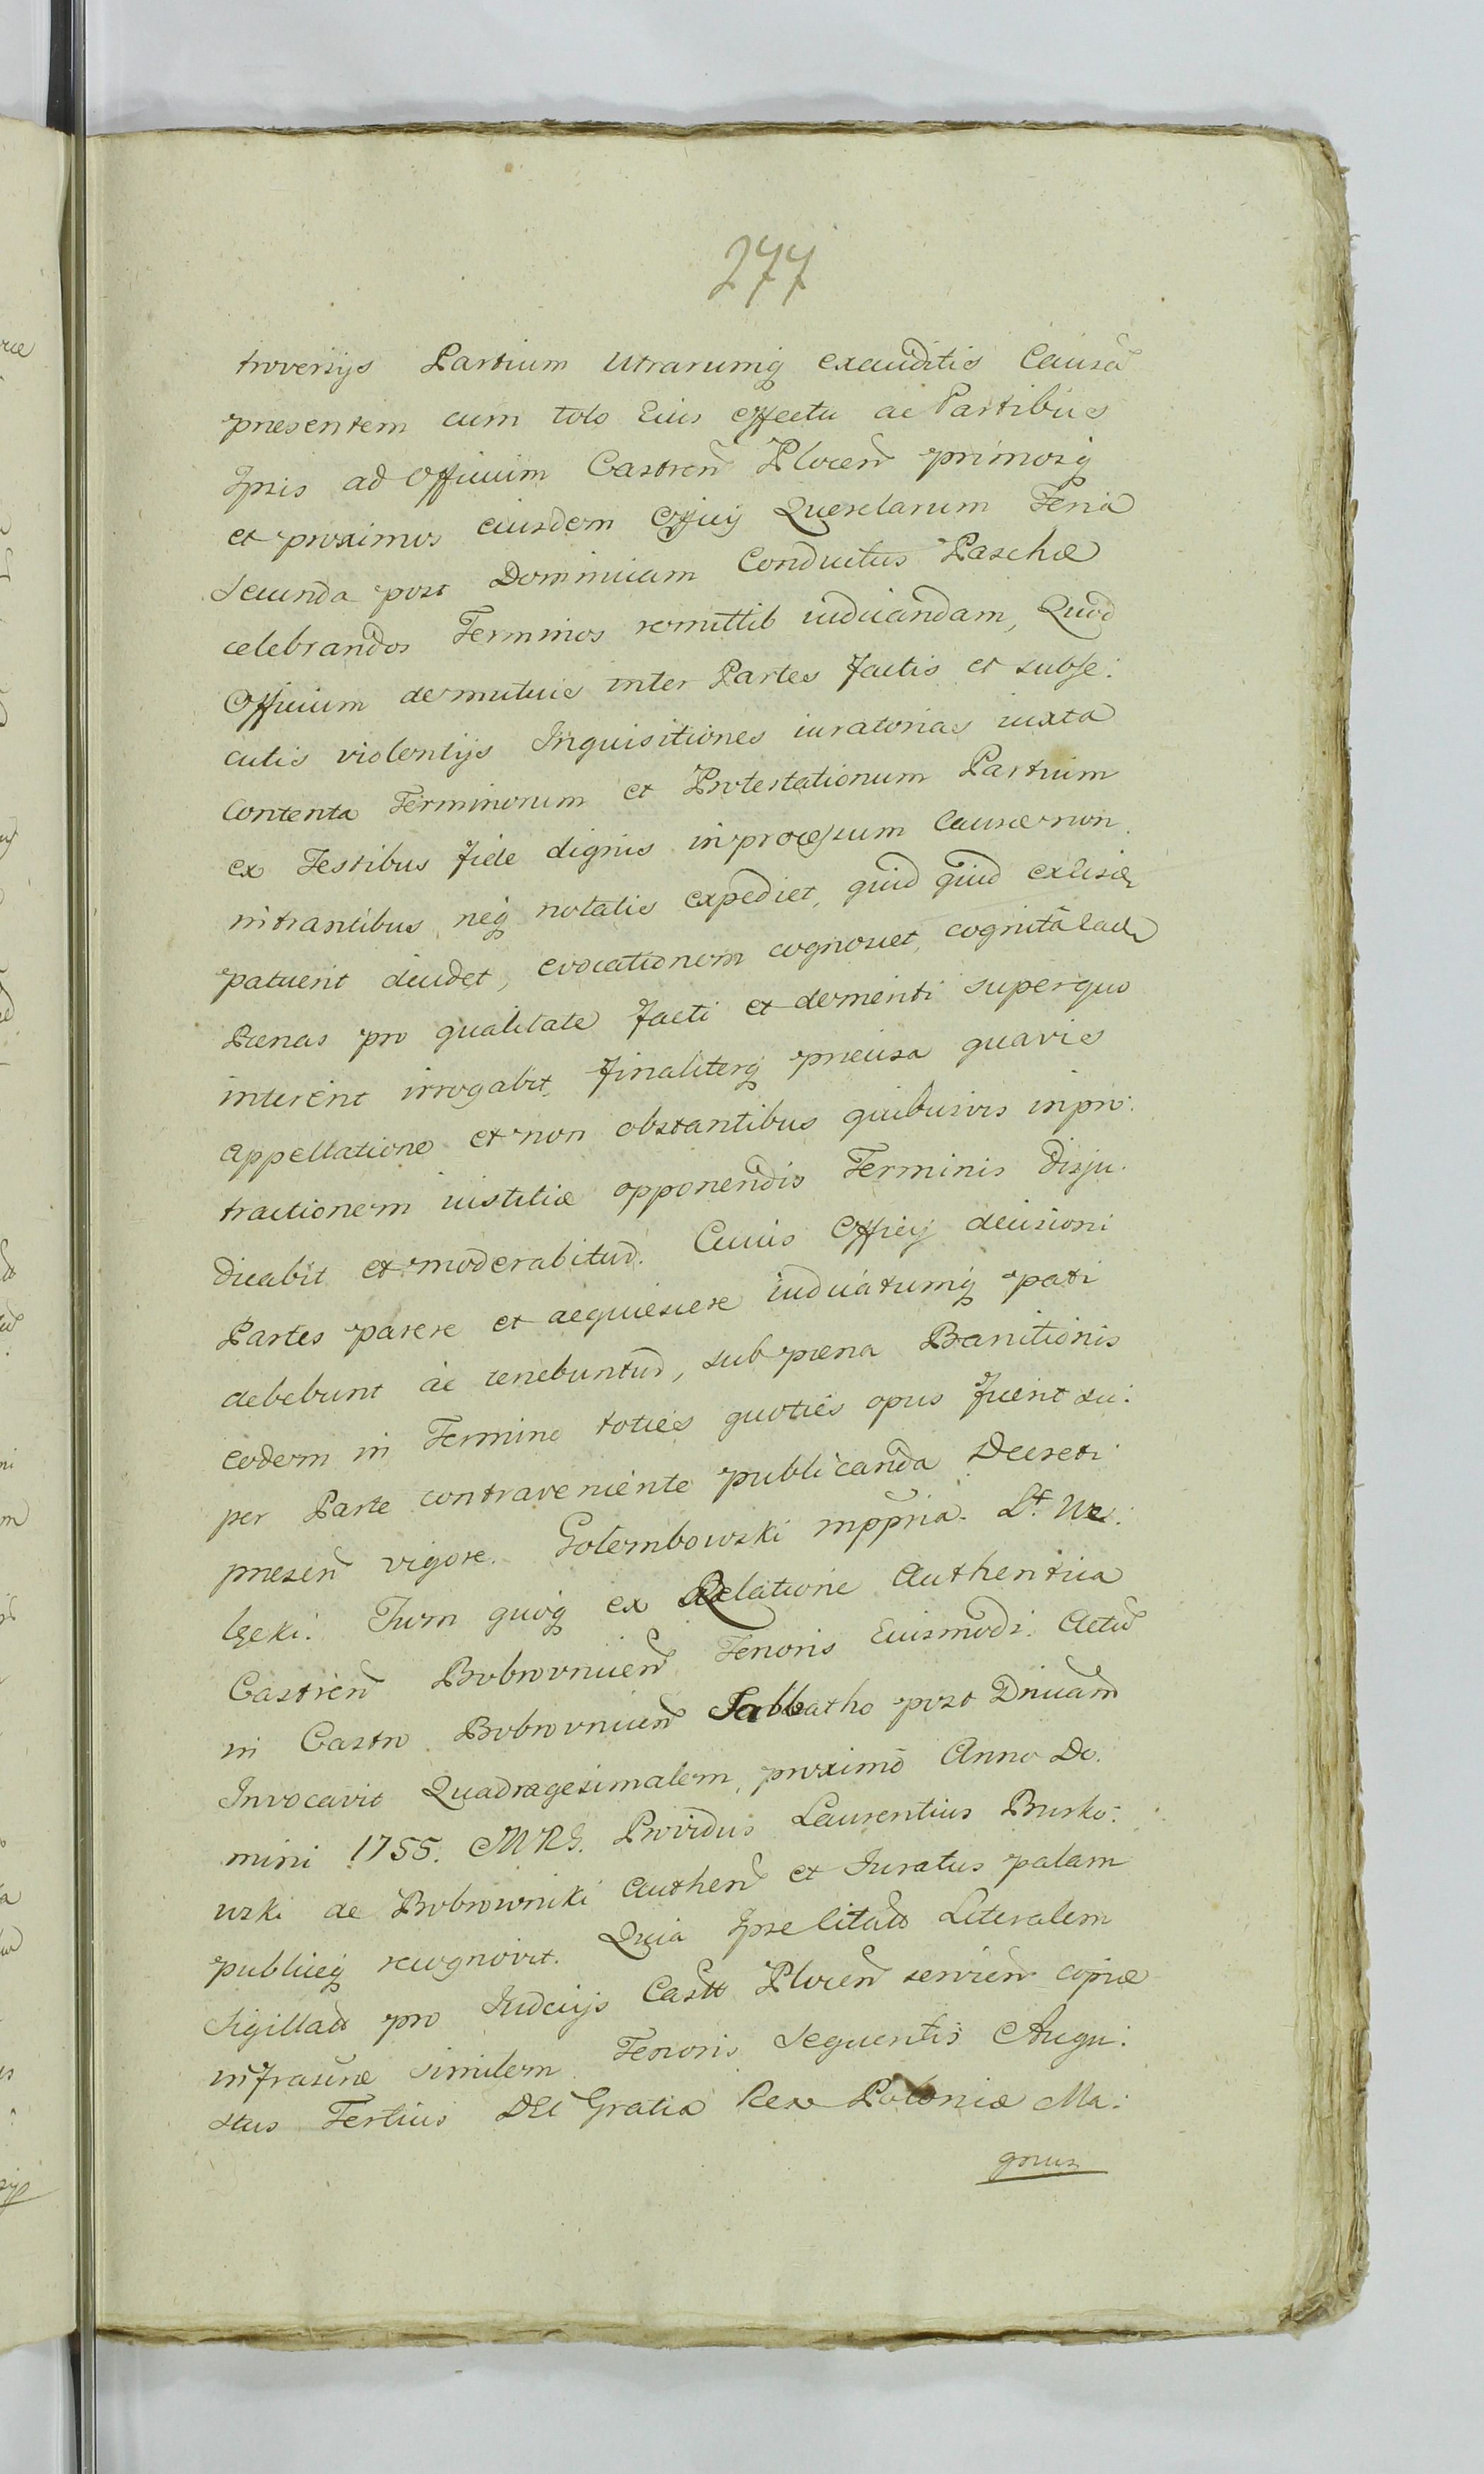 277
troversijs Partium Utrarumq exauditis Causã
presentem cum toto Eius effectu ac Partibus
Ipsis ad Officium Castreñ Ploceñ primosq
et proximos eiusdem Officij Querelarum Feria
Secunda post Dominicam Conductus Paschæ
celebrandos Terminos remittit iudicandam, Quod
Officium de mutuis inter Partes factis et subse:
cutis violentijs Inquisitiones iuratorias iuxta
Contenta Terminorum et Protestationum Partium
ex Testibus fide dignis in processum Causæ non
intrantibus neq notatis expediet, quid quid ex
patuerit decidet, evocationem cognoscet, cognitã
Pænas pro qualitate facti et demeriti super quo
interérit irrogabit, finaliterq precisa quavis
appellatione et non obstantibus quibusvis in pro:
tractionem iustitiæ opponendis Terminis disju:
dicabit et moderabitur. Cuius Officij decisioni
Partes parere et acquiescere iudicatumq pati
debebunt ac tenebuntur, sub pæna Banitionis
eodem in Termino toties quoties opus fuerit su:
per Parte contraveniente publicanda Decreti
preseñ vigore. Golembowski mppria.
Tum quoq ex Relatione Authentica
Castreñ Bobrovniceñ Tenoris Eiusmodi. Actũ
in Castro Bobrovniceñ Sabbatho post Dnicam
Invocavit Quadragesimalem, proximo Anno Do:
mini 1755. MRG. Providus Laurentius Bursko:
wski de Bobrowniki Autheñ et Iuratus palam
publiceq recognovit. Quia Ipse Literalem
Sigillatt pro Iudicijs Castr Ploceñ servieñ copiæ
similem Tenoris Sequentis Augu:
stus Tertius DEI Gratia Rex Poloniæ Ma:
gnus